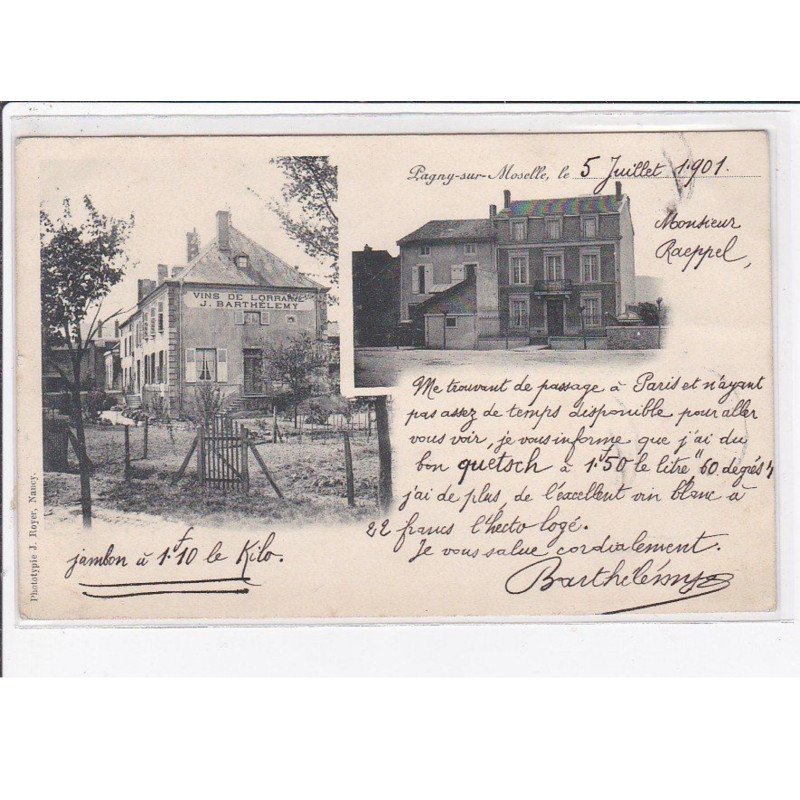 Pagny-sur-Moselle, le 5 Juillet 1901.
Monsieur
Raeppel,
VINS DE LORRAINE
J. BARTHÉLEMY
Me trouvant de passage à Paris et n'ayant
pas assez de temps disponible pour aller
vous voir, je vous informe que j'ai du
bon quetsch à 1f50 le litre "60 degrés"
j'ai de plus de l'excellent vin blanc à
22 francs l'hecto logé.
Je vous salue cordialement.
Barthélémy
jambon à 1f10 le Kilo.
Phototypie J. Royer, Nancy.